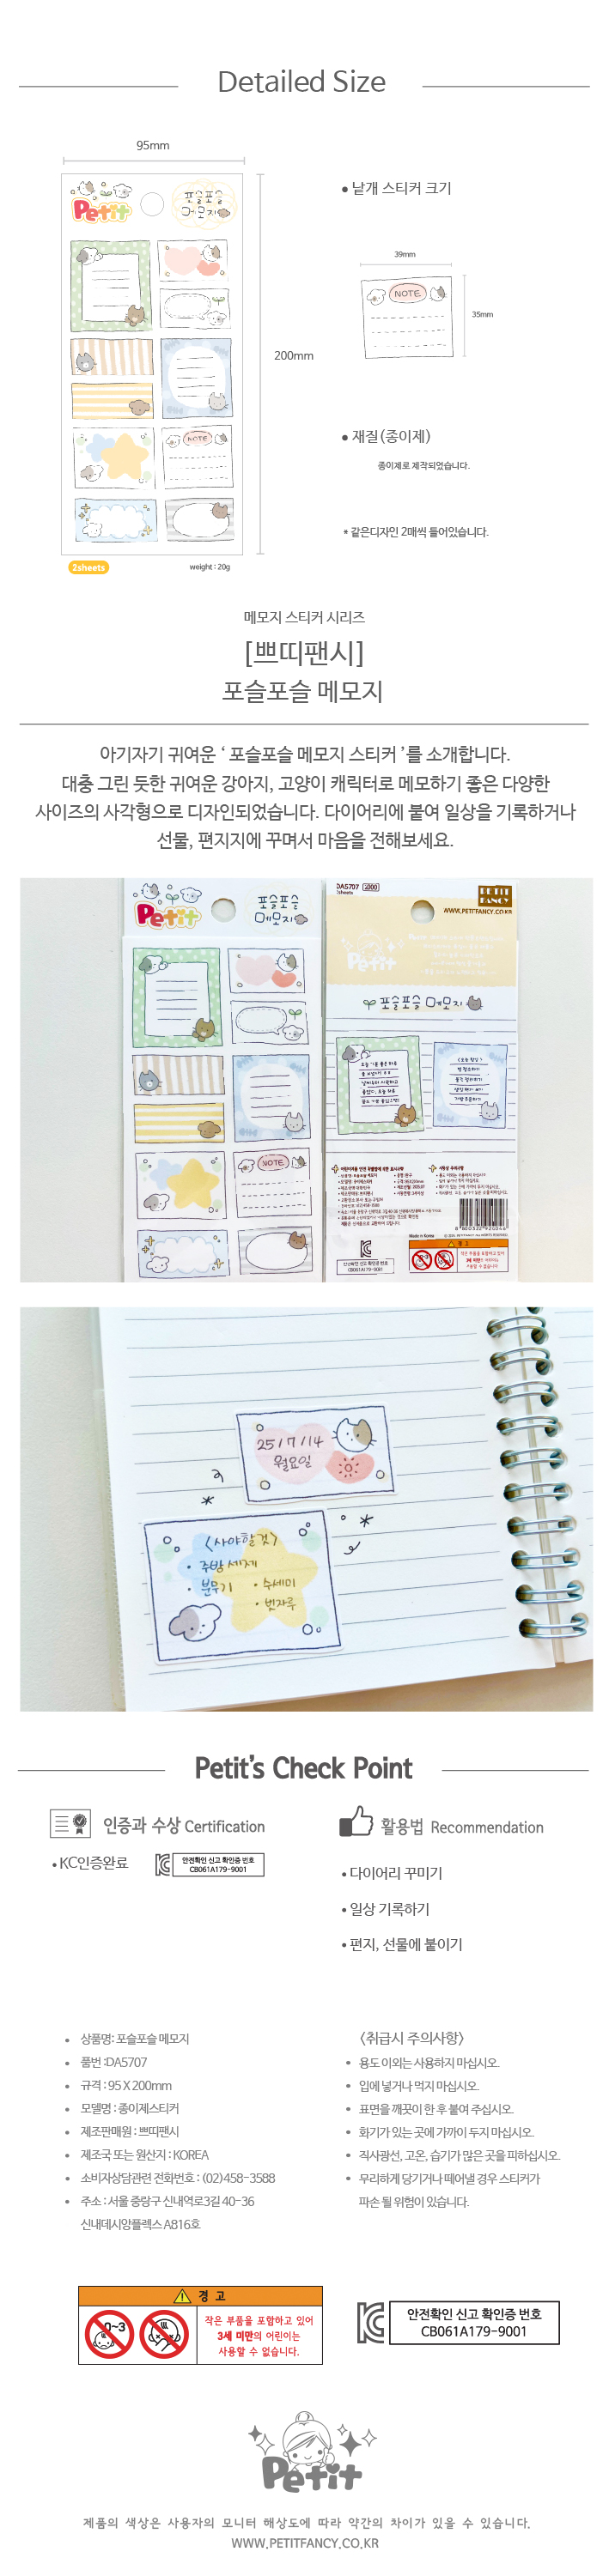 Detailed Size
95mm
Petit
포슬포슬
메모지
NOTE
200mm
2sheets
weight : 20g
• 낱개 스티커 크기
39mm
NOTE
35mm
• 재질(종이제)
종이제로 제작되었습니다.
* 같은디자인 2매씩 들어있습니다.
메모지 스티커 시리즈
[쁘띠팬시]
포슬포슬 메모지
아기자기 귀여운 ‘ 포슬포슬 메모지 스티커 ’를 소개합니다.
대충 그린 듯한 귀여운 강아지, 고양이 캐릭터로 메모하기 좋은 다양한
사이즈의 사각형으로 디자인되었습니다. 다이어리에 붙여 일상을 기록하거나
선물, 편지지에 꾸며서 마음을 전해보세요.
Petit
포슬포슬
메모지
NOTE
DA5707
2sheets
PETIT
FANCY
WWW.PETITFANCY.CO.KR
Petit
포슬포슬 메모지
Made in Korea
경 고
안전확인 신고 확인증 번호
CB061A179-9001
25/7/14
월요일
<사야할것>
• 주방세제
분무기
• 수세미
• 빗자루
Petit's Check Point
인증과 수상 Certification
• KC인증완료
안전확인 신고 확인증 번호
CB061A179-9001
활용법 Recommendation
• 다이어리 꾸미기
• 일상 기록하기
• 편지, 선물에 붙이기
• 상품명: 포슬포슬 메모지
• 품번 :DA5707
• 규격 : 95 X 200mm
• 모델명 : 종이제스티커
• 제조판매원 : 쁘띠팬시
• 제조국 또는 원산지 : KOREA
• 소비자상담관련 전화번호 : (02)458-3588
• 주소 : 서울 중랑구 신내역로3길 40-36
신내데시앙플렉스 A816호
<취급시 주의사항>
• 용도 이외는 사용하지 마십시오.
• 입에 넣거나 먹지 마십시오.
• 표면을 깨끗이 한 후 붙여 주십시오.
• 화기가 있는 곳에 가까이 두지 마십시오.
• 직사광선, 고온, 습기가 많은 곳을 피하십시오.
• 무리하게 당기거나 떼어낼 경우 스티커가
파손 될 위험이 있습니다.
경 고
0~3
작은 부품을 포함하고 있어
3세 미만의 어린이는
사용할 수 없습니다.
안전확인 신고 확인증 번호
CB061A179-9001
Petit
제품의 색상은 사용자의 모니터 해상도에 따라 약간의 차이가 있을 수 있습니다.
WWW.PETITFANCY.CO.KR